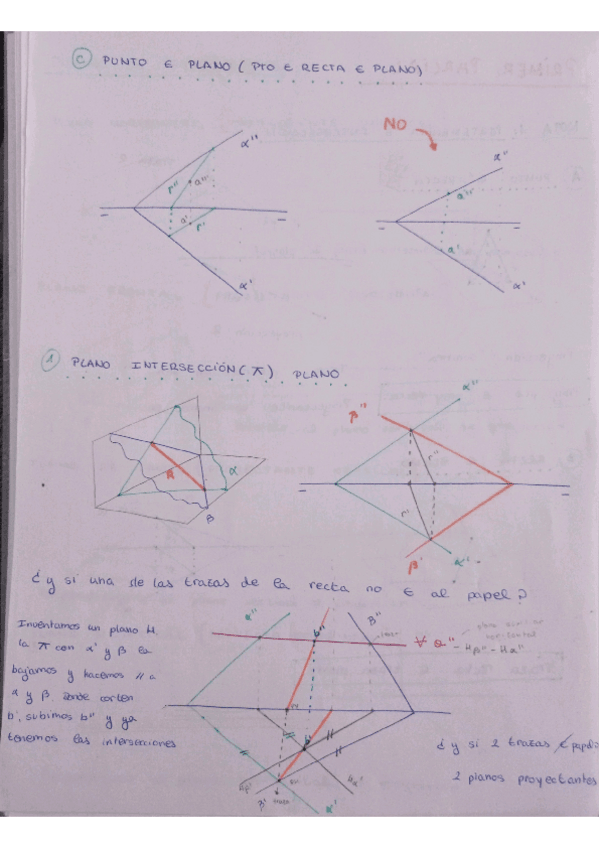 C PUNTO ∈ PLANO (PTO ∈ RECTA ∈ PLANO)
NO
α''
r''
a''
a'
r'
α'
α''
a''
a'
α'
1 PLANO INTERSECCIÓN (π) PLANO
R
α
β
β''
α''
r''
r'
β'
α'
¿y si una de las trazas de la recta no ∈ al papel?
Inventamos un plano H,
la π con α' y β la
bajamos y hacemos // a
α y β. Donde corten
b', subimos b'' y ya
tenemos las intersecciones
α''
b''
β''
plano auxiliar
horizontal
∀ Q'' - Hβ'' - Hα''
//
//
//
b'
Hα'
β' traza
α'
¿y si 2 trazas ∉ papel?
2 planos proyectantes